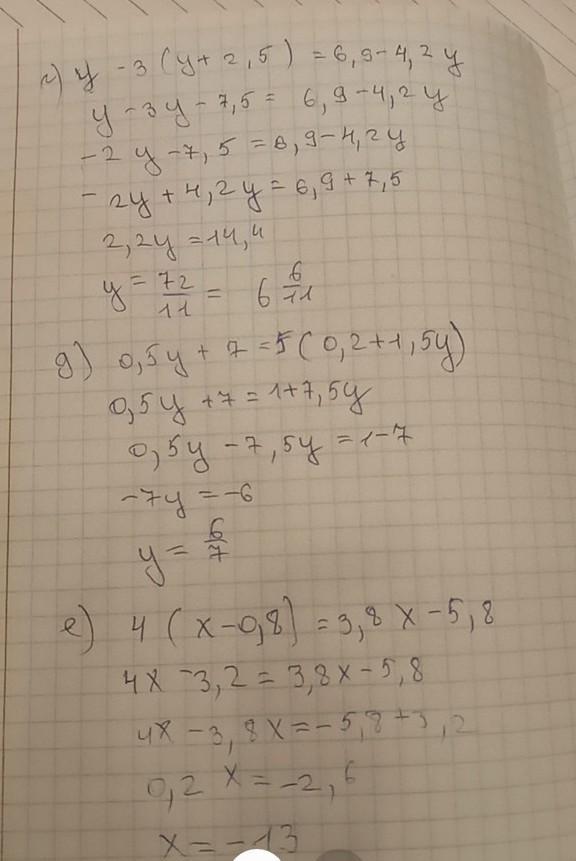 г) y - 3 (y + 2,5) = 6,9 - 4,2y
y - 3y - 7,5 = 6,9 - 4,2y
-2y - 7,5 = 6,9 - 4,2y
-2y + 4,2y = 6,9 + 7,5
2,2y = 14,4
y = 72/11 = 6 6/11
д) 0,5y + 7 = 5(0,2+1,5y)
0,5y + 7 = 1+7,5y
0,5y - 7,5y = 1-7
-7y = -6
y = 6/7
е) 4 (x-0,8) = 3,8x - 5,8
4x - 3,2 = 3,8x - 5,8
4x - 3,8x = -5,8 + 3,2
0,2x = -2,6
x = -13